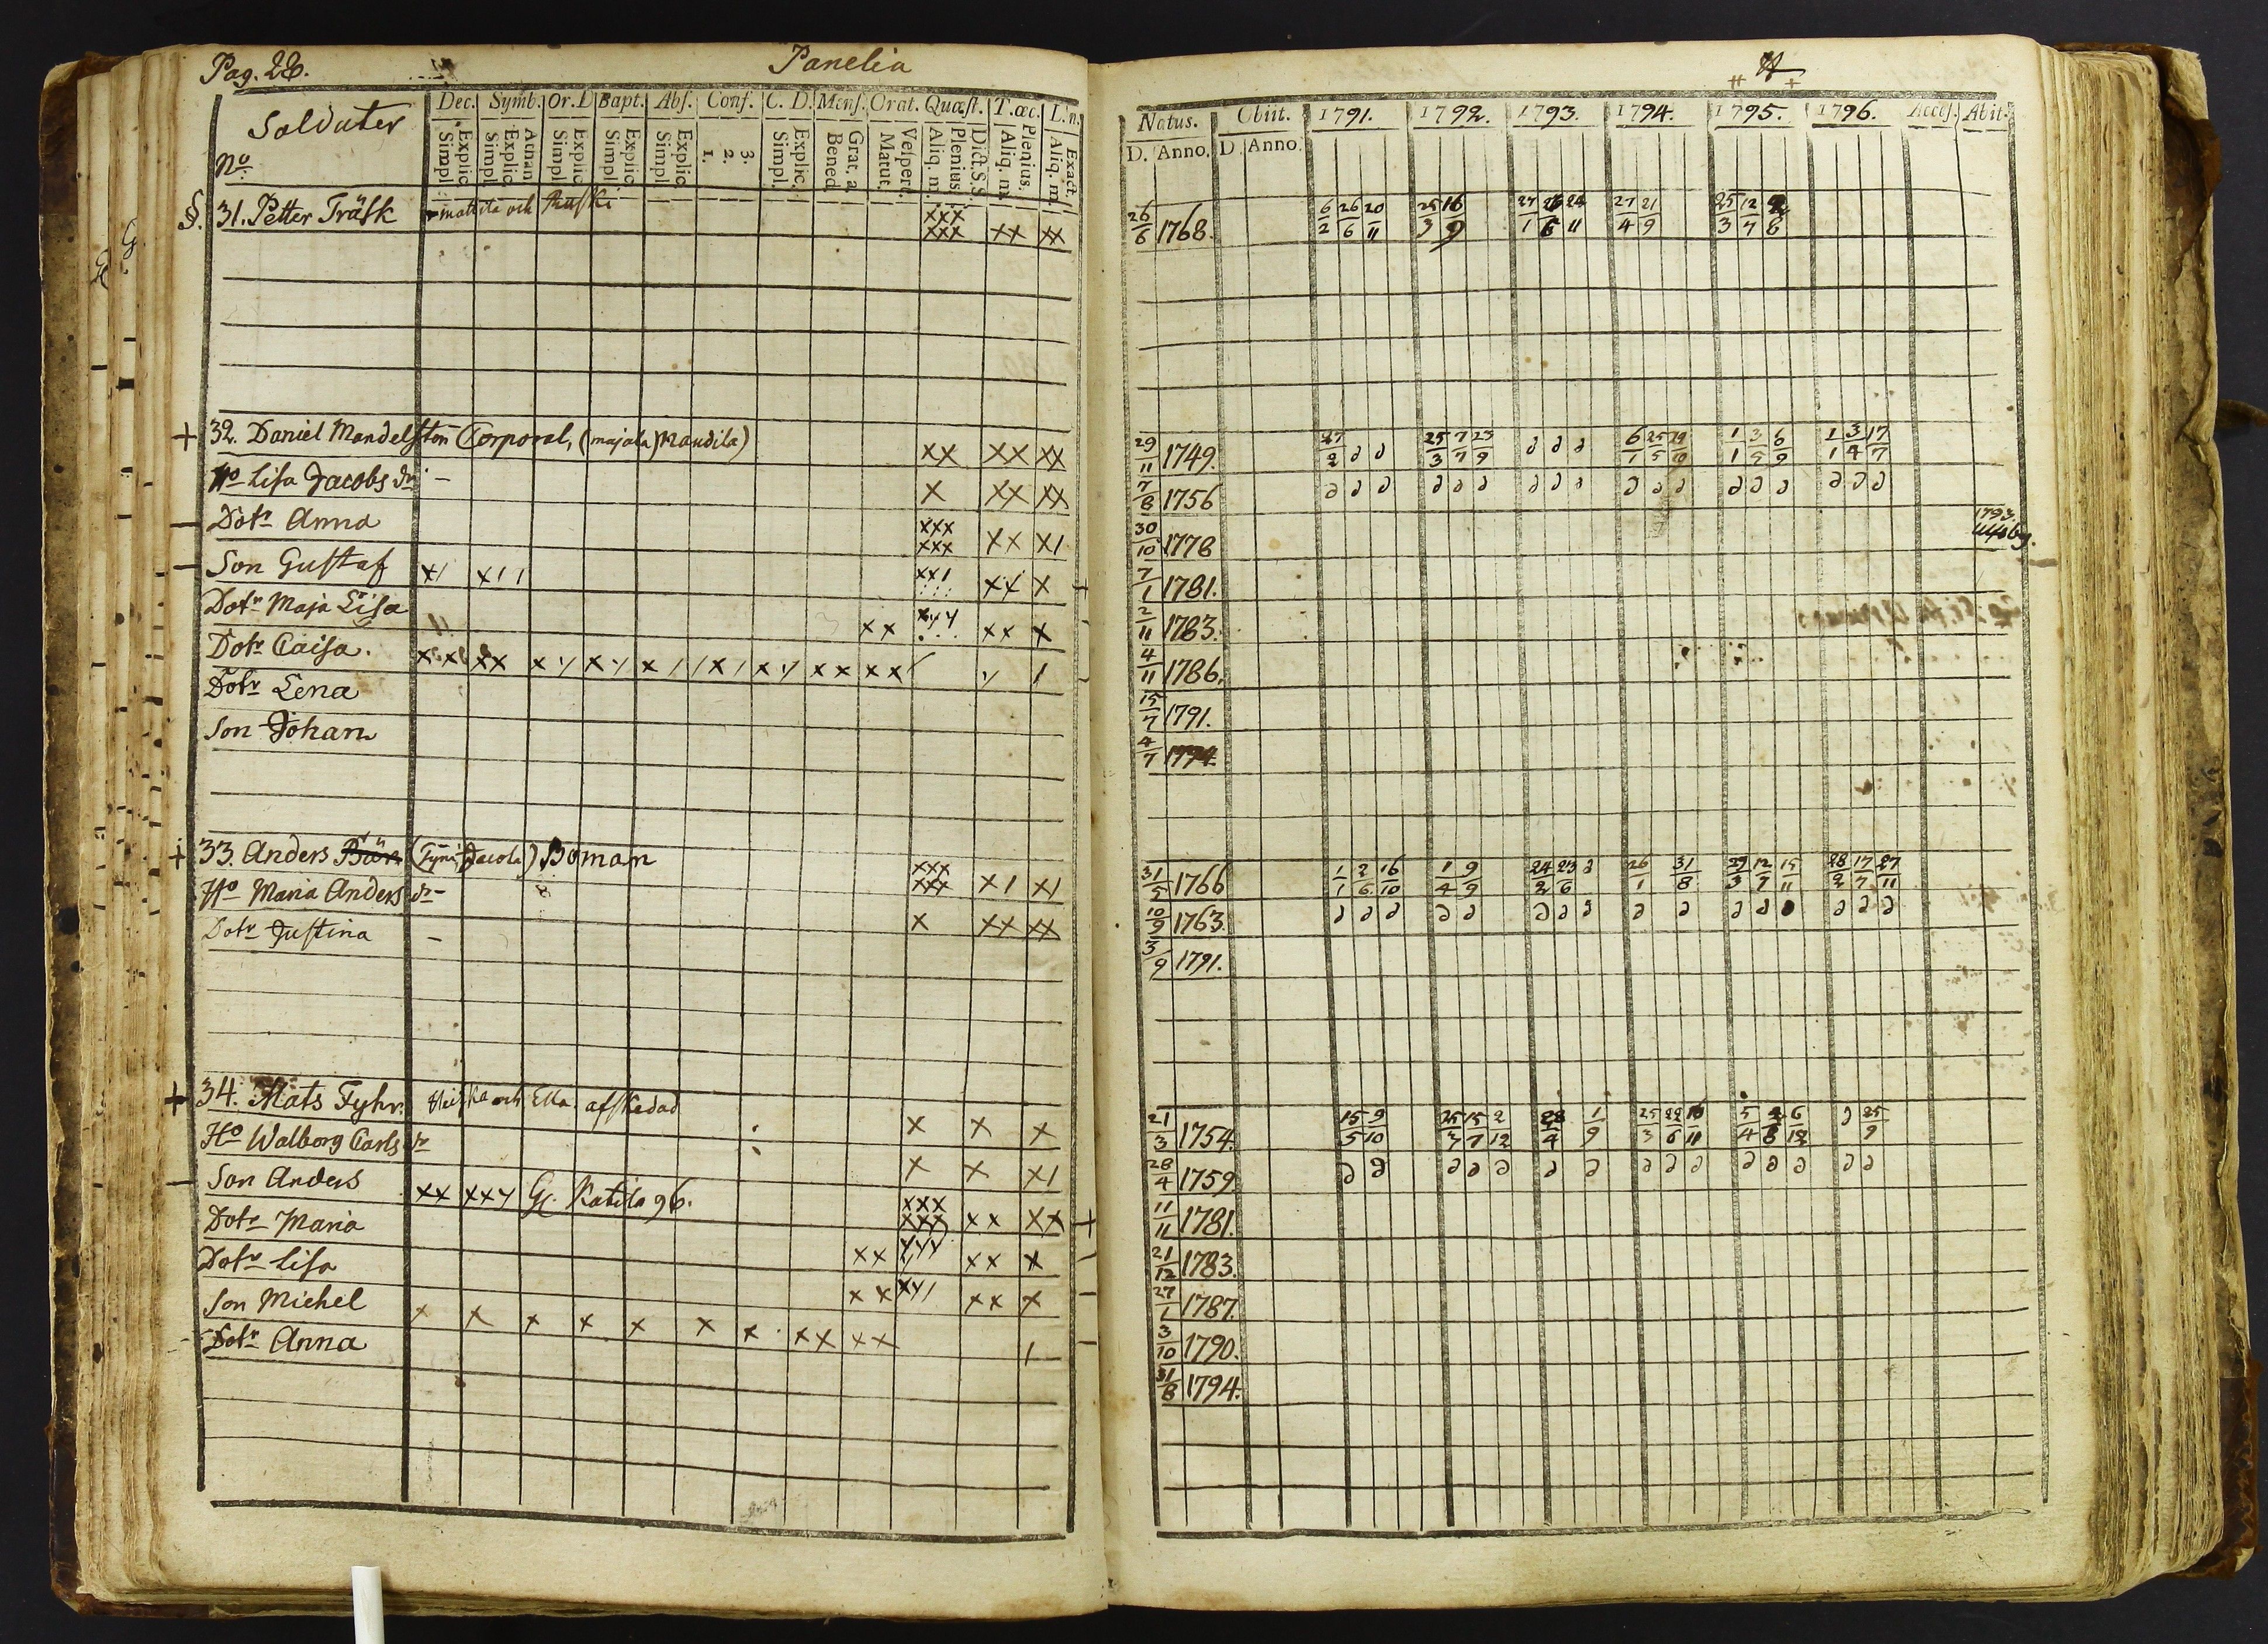 Pag. 28. Panelia
Soldater
No.
Dec. Symb. Or. D Bapt. Abs. Conf. C. D. Mens. Orat. Quæst. T. œc. L. n.
Explic. Simpl. Athan. Explic. Simpl. Explic. Simpl. Explic. Simpl. Explic. Simpl. 3. 2. 1. Explic. Simpl. Grat. a. Bened. Vespert. Matut. Dict. S.S. Plenius. Aliq. m. Plenius. Aliq. m. Exact. Aliq. m.
Natus. Obiit. 1791. 1792. 1793. 1794. 1795. 1796. Access. Abit.
D. Anno. D. Anno.
§. 31. Petter Träsk mattila och Ruski xxx xxx xx xx 26/6 1768. 6/2 26/6 20/11 25/3 16/9 21/4 9 25/3 12/7
+ 32. Daniel Mandelston Corporal, (majala) Naudila) xx xx xx 29/11 1749. 27/2 ∂ ∂ 25/3 7/7 23/9 ∂ ∂ ∂ 6/1 25/5 19/10 1/1 3/5 6/9 1/1 3/4 17/7
Ho Lisa Jacobs dr. – x xx xx 7/8 1756 ∂ ∂ ∂ ∂ ∂ ∂ ∂ ∂ ∂ ∂ ∂ ∂ ∂ ∂ ∂ ∂ ∂ ∂
– Dotr Anna xxx xxx xx x1 30/10 1778 1793. Ulfsby.
– Son Gustaf x1 x11 xx1 xx x 7/1 1781.
Dotr Maja Lisa xx xyy xx x 2/11 1783.
Dotr Caisa. xx xx xy xy x11 x1 xy xx xx y 1 4/11 1786.
Dotr Lena 15/7 1791.
Son Johan 4/7 1794
+ 33. Anders Bär (Tyni Jacola) Boman xxx xxx x1 x1 31/5 1766 1/1 2/6 16/10 1/4 9/9 24/2 23/6 ∂ 26/1 31/8 29/3 12/7 15/11 28/2 17/7 27/11
Ho Maria Anders dr – x xx xx 10/9 1763. ∂ ∂ ∂ ∂ ∂ ∂ ∂ ∂ ∂ ∂ ∂ ∂ ∂ ∂ ∂ ∂
Dotr Justina – 3/9 1791.
+ 34. Mats Fyhr. och Ella afskedad x x x 21/3 1754. 15/5 9/10 25/3 15/7 2/12 28/4 1/9 25/3 22/6 5/4 6/12 ∂ 25/9
Ho Walborg Carls dr x x x1 28/4 1759. ∂ ∂ ∂ ∂ ∂ ∂ ∂ ∂ ∂ ∂ ∂ ∂ ∂ ∂ ∂
– Son Anders xx xxy Gl. Katila 96. xxx xxx xx xx 11/11 1781.
Dotr Maria xx yyy xx x 21/12 1783.
Dotr Lisa xx xy1 xx x 27/1 1787.
Son Michel x x x x x x x xx xx 1 3/10 1790.
Dotr Anna 31/8 1794.